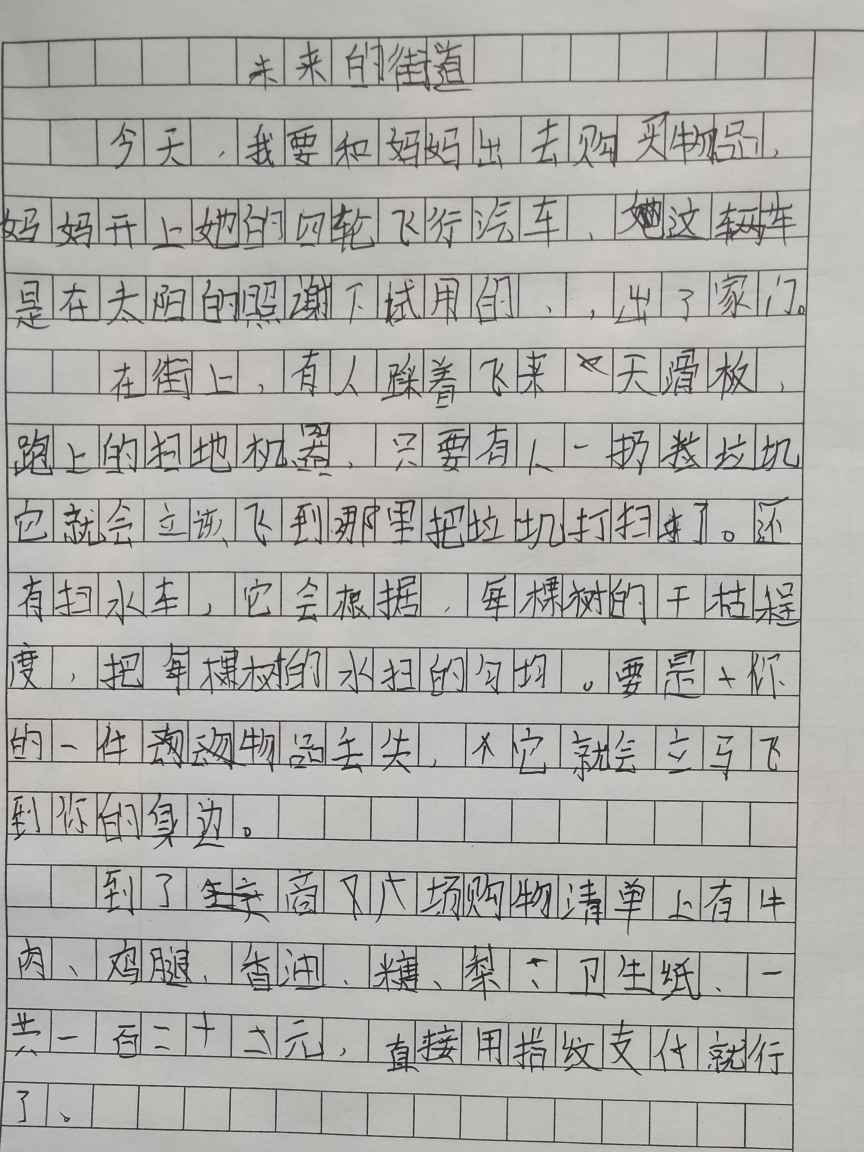 未来的街道
今天，我要和妈妈出去购买物品，
妈妈开上她的四轮飞行汽车，她这辆车
是在太阳的照谢下试用的，，出了家门。
在街上，有人踩着飞来天滑板，
跑上的扫地机器，只要有人一扔垃圾
它就会立该飞到那里把垃圾打扫来了。还
有扫水车，它会根据，每棵树的干枯程
度，把每棵树的水扫的匀均。要是你
的一件物品丢失，它就会立马飞
到你的身边。
到了商广场购物清单上有牛
肉、鸡腿、香油、糖、梨、卫生纸、一
共一百二十二元，直接用指纹支付就行
了。